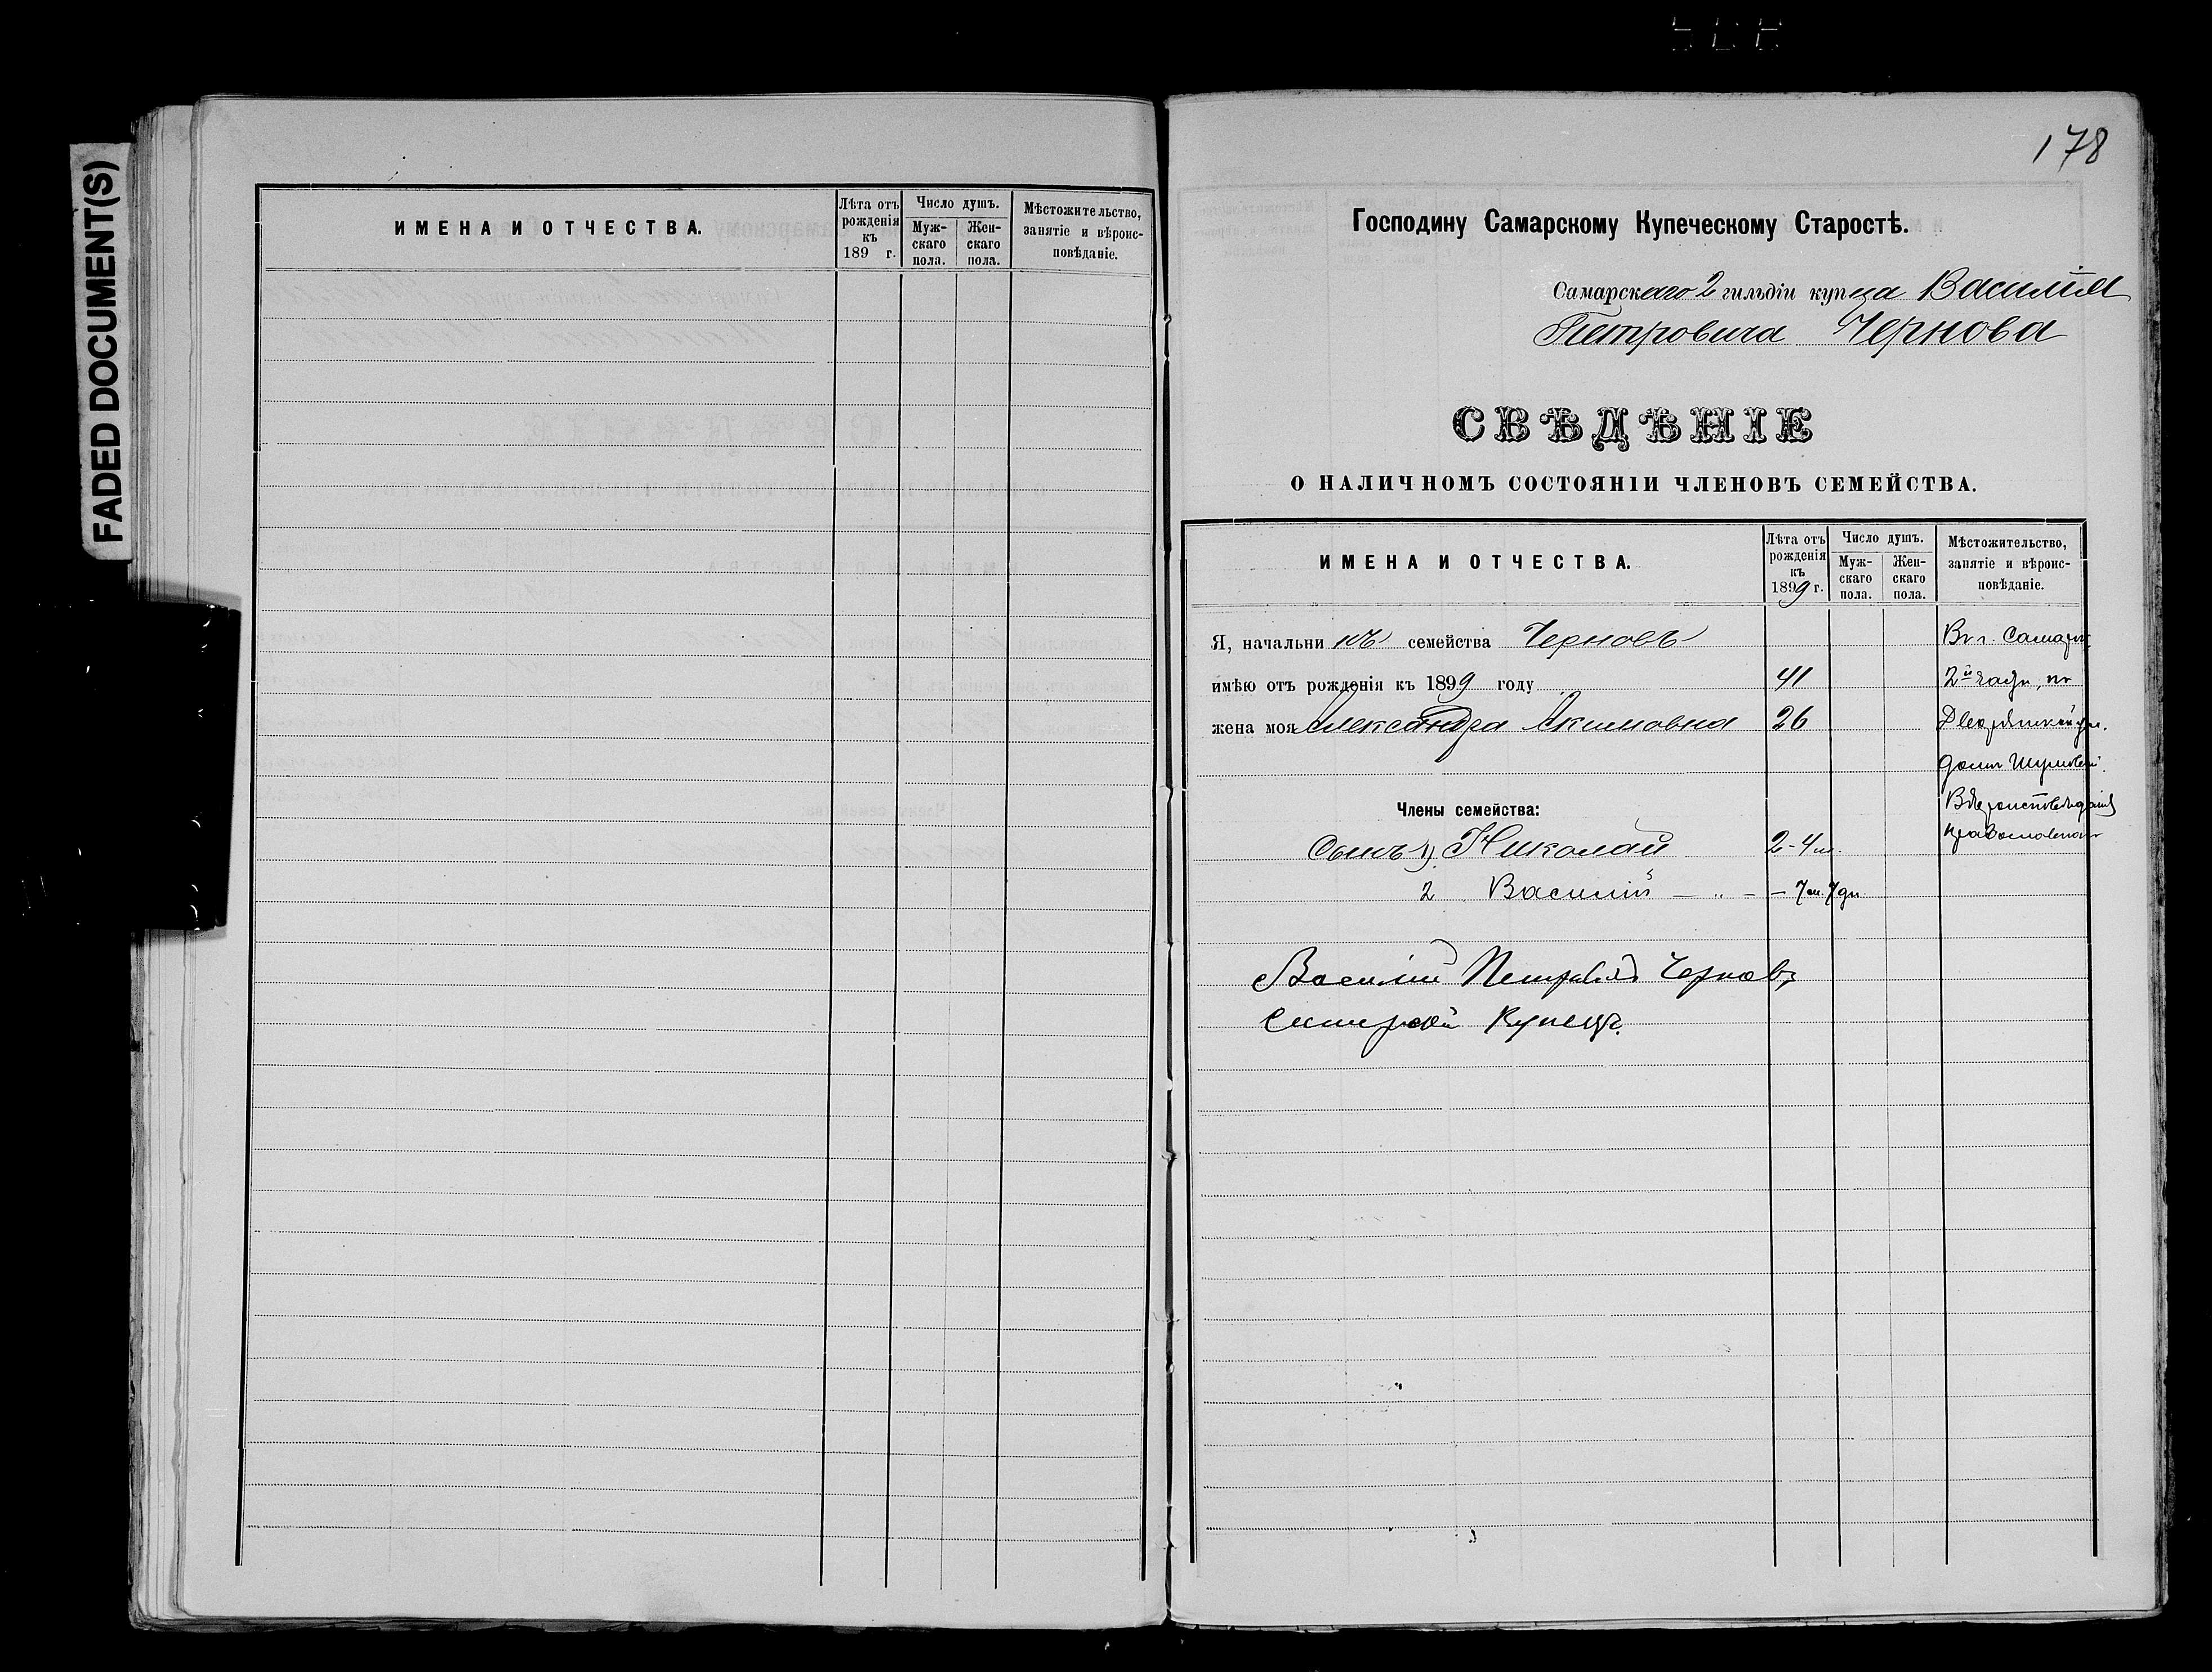 FADED DOCUMENT(S)
ИМЕНА И ОТЧЕСТВА.
Лѣта отъ
рожденія
къ
189 г.
Число душъ.
Муж-
скаго
пола.
Жен-
скаго
пола.
Мѣстожительство,
занятіе и вѣроис-
повѣданіе.
178
Господину Самарскому Купеческому Старостѣ.
Самарскаго 2 гильдіи купца Василія
Петровича Чернова
СВѢДѢНІЕ
О НАЛИЧНОМЪ СОСТОЯНІИ ЧЛЕНОВЪ СЕМЕЙСТВА.
ИМЕНА И ОТЧЕСТВА.
Лѣта отъ
рожденія
къ
1899 г.
Число душъ.
Муж-
скаго
пола.
Жен-
скаго
пола.
Мѣстожительство,
занятіе и вѣроис-
повѣданіе.
Я, начальникъ семейства Черновъ
Въ г. Самарѣ,
имѣю отъ рожденія къ 1899 году 41
2й части, по
жена моя Александра Акимовна 26
Дворянской ул.
домъ
Вѣроисповѣданія
Члены семейства:
православнаго
Сынъ 1) Николай 2-4 м.
2 Василій — „ — — 7 м. 7 дн.
Василій Петровъ Черновъ,
Самарскій Купецъ.